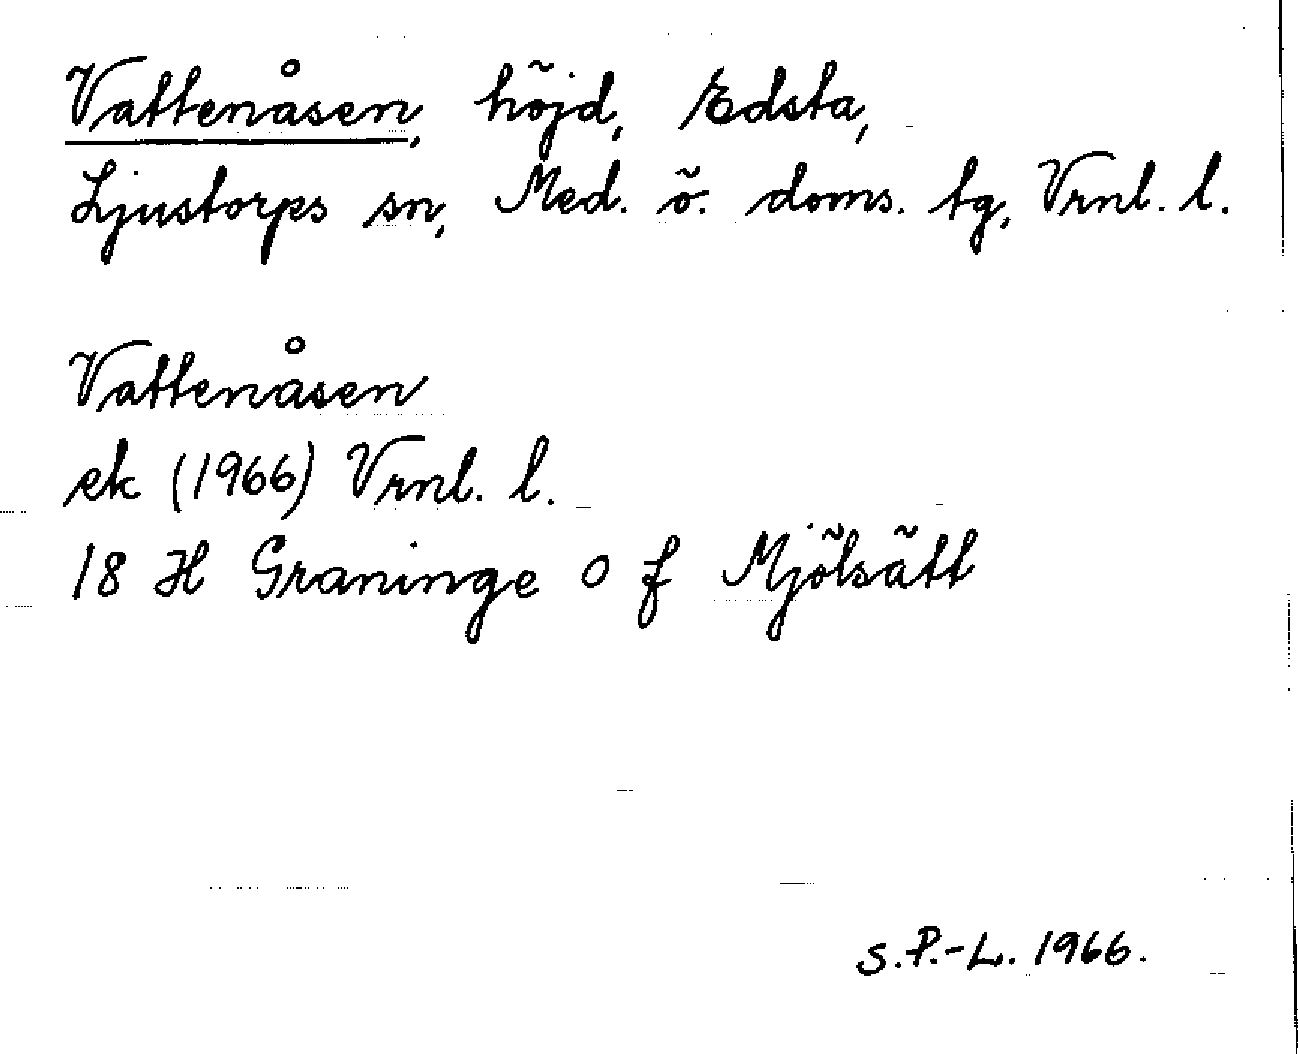 Vattenåsen, höjd, Edsta,
Ljustorps sn, Med. ö. doms. tg, Vrnl. l.
Vattenåsen
ek (1966) Vrnl. l.
18 H Graninge o f Mjölsätt
S.P.-L. 1966.